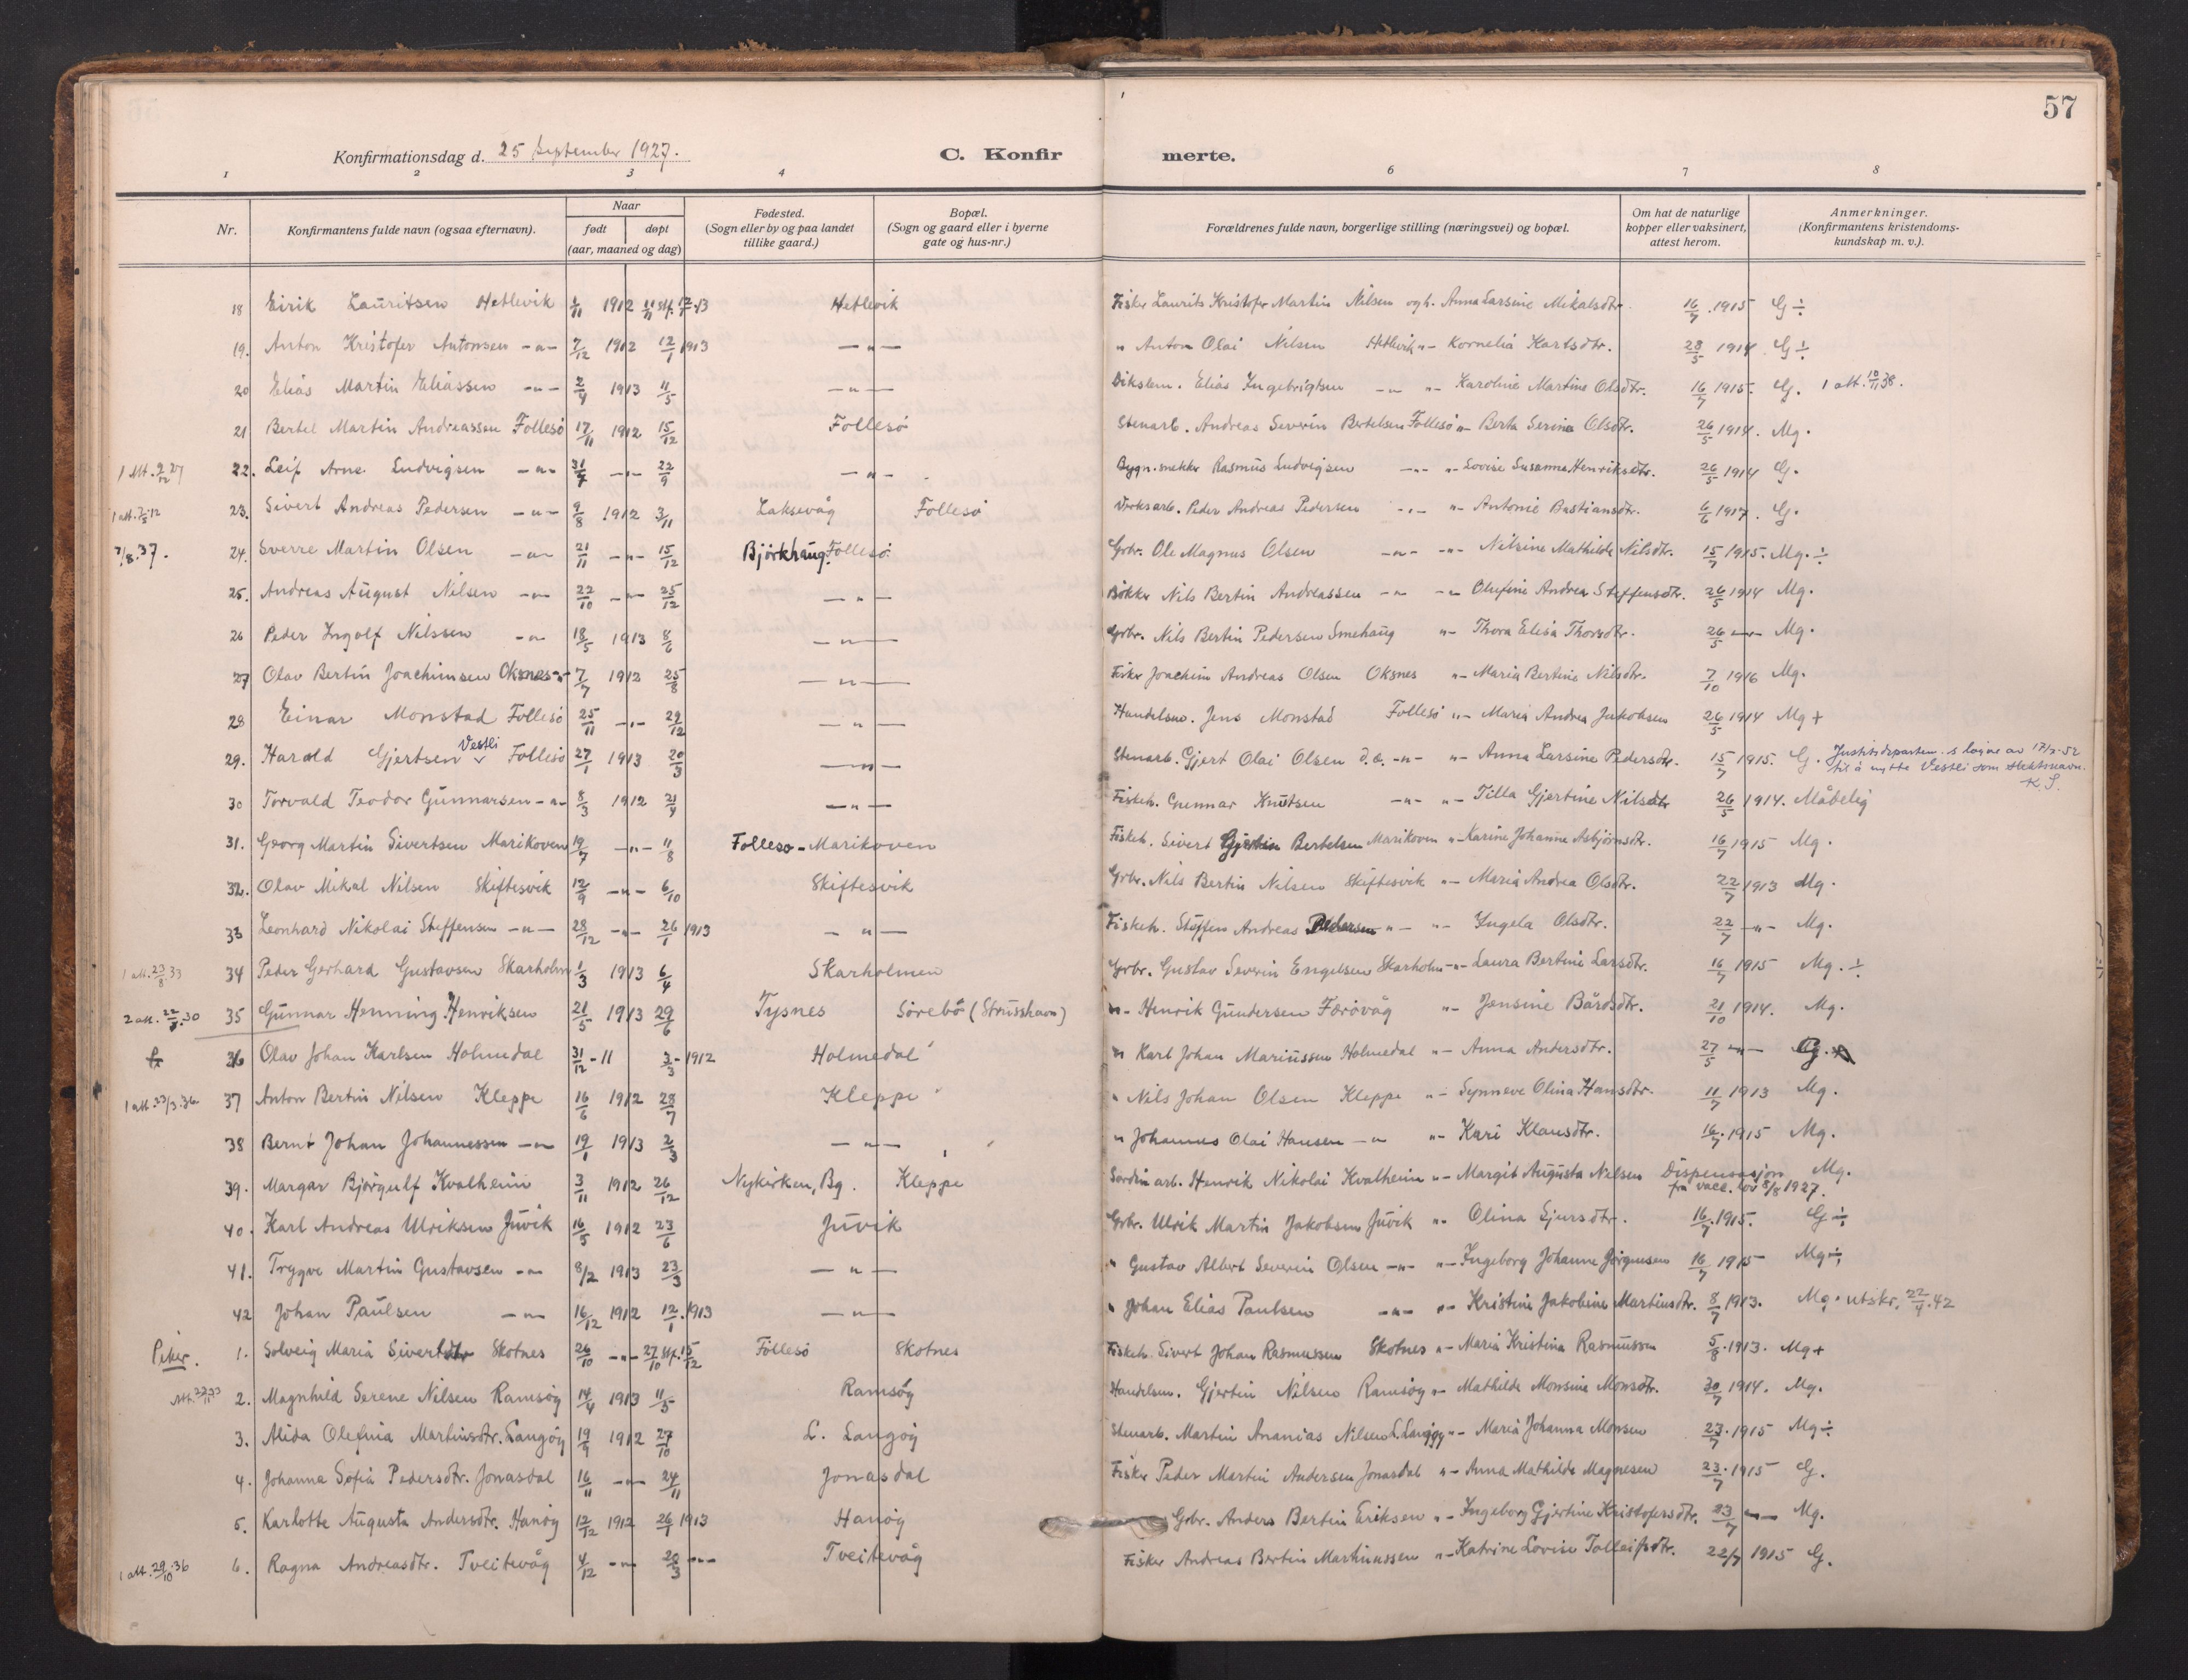 57
Konfirmationsdag d. 25 September 1927. C. Konfirmerte.
1 2 3 4 6 7 8
Nr. Konfirmantens fulde navn (ogsaa efternavn). Naar født døpt (aar, maaned og dag) Fødested. (Sogn eller by og paa landet tillike gaard.) Bopæl. (Sogn og gaard eller i byerne gate og hus-nr.) Forældrenes fulde navn, borgerlige stilling (næringsvei) og bopæl. Om hat de naturlige kopper eller vaksinert, attest herom. Anmerkninger. (Konfirmantens kristendoms-kundskap m. v.).
18 Eirik Lauritsen Hetlevik 1/11 1912 11/11 stf. 12/1 13 Hetlevik Fisker Laurits Kristofer Martin Nilsen og h. Anna Larsine Mikalsdtr. 16/7 1915 G ÷
19. Anton Kristofer Antonsen -"- 7/12 1912 12/1 1913 -"- " Anton Olai Nilsen Hetlevik "- Kornelia Karlsdtr. 28/5 1914 G ÷
20 Elias Martin Eliassen -"- 2/4 1913 11/5 -"- Dikslem. Elias Ingebrigtsen -"- "- Karoline Martine Olsdtr. 16/7 1915. G. 1 att. 10/11 38.
21 Bertel Martin Andreassen Follesö 17/11 1912 15/12 Follesö Stenarb. Andreas Severin Bertelsen Follesö "- Berta Serine Olsdtr. 26/5 1914. Mg.
1 Att. 2/12 27 22. Leif Arne Ludvigsen -"- 31/7 -"- 22/9 -"- Bygn.snekker Rasmus Ludvigsen -"- "- Lovise Susanna Henriksdtr. 26/5 1914 G.
23. Sivert Andreas Pedersen -"- 9/8 1912 3/11 Laksevåg Follesö Verksarb. Peder Andreas Pedersen -"- "- Antonie Bastiansdtr. 6/6 1917. G.
7/8.37. 24. Sverre Martin Olsen -"- 21/11 -"- 15/12 Björkhaug. Follesö Grbr. Ole Magnus Olsen -"- -"- Nilsine Mathilde Nilsdtr. 15/7 1915. Mg. ÷
25. Andreas August Nilsen -"- 22/10 -"- 25/12 -"- Bökker Nils Bertin Andreassen -"- -"- Olufine Andrea Steffensdtr. 26/5 1914 Mg.
26 Peder Ingolf Nilssen -"- 18/5 1913 8/6 -"- Grbr. Nils Bertin Pedersen Smehaug "- Thora Elisa Thorsdtr. 26/5 -"- Mg.
27 Olav Bertin Joachimsen Oksnes -"- 7/7 1912 25/8 -"- Fisker Joachim Andreas Olsen Oksnes "- Maria Bertine Nilsdtr. 7/10 1916 Mg.
28 Einar Monstad Follesö 25/11 -"- 29/12 -"- Handelsm. Jens Monstad Follesö "- Maria Andrea Jakobsen 26/5 1914 Mg +
29. Harald Gjertsen Vestli Follesö 27/1 1913 20/3 -"- Stenarb. Gjert Olai Olsen d.e. -"- "- Anna Larsine Pedersdtr. 15/7 1915. G. Justitsdepartem.s løyve av 17/3-52 til å nytte Vestli som slektsnavn. K.S.
30 Torvald Teodor Gunnarsen -"- 8/3 1912 21/4 -"- Fiskeh. Gunnar Knutsen -"- "- Tilla Gjertine Nilsdtr 26/5 1914. Måbelig
31. Georg Martin Sivertsen Marikoven 19/7 -"- 11/8 Follesø - Marikoven Fiskeh. Sivert Gjertin Bertelsen Marikoven "- Karine Johanne Asbjörnsdtr. 16/7 1915 Mg.
32. Olav Mikal Nilsen Skiftesvik 12/9 -"- 6/10 Skiftesvik Grbr. Nils Bertin Nilsen Skiftesvik "- Maria Andrea Olsdtr. 22/7 1913 Mg.
33 Leonhard Nikolai Steffensen -"- 28/12 -"- 26/1 1913 -"- Fiskeh. Steffen Andreas Pedersen -"- "- Ingela Olsdtr. 22/7 -"- Mg.
1 att. 23/8 33 34 Peder Gerhard Gustavsen Skarholm 1/3 1913 6/4 Skarholmen Grbr. Gustav Severin Engelsen Skarholm "- Laura Bertine Larsdtr. 16/7 1915 Mg. ÷
35 Gunnar Henning Henriksen 21/5 1913 29/6 Tysnes Sörebö (Strusshavn) "- Henrik Gundersen Færövåg "- Jensine Bårdsdtr. 21/10 1914. Mg.
36 Olav Johan Karlsen Holmedal 31/12 - 11 3/3 - 1912 Holmedal " Karl Johan Mariussen Holmedal "- Anna Andersdtr. 27/5 -"- G.
1 att. 23/3.36 37 Anton Bertin Nilsen Kleppe 16/6 1912 28/7 Kleppe " Nils Johan Olsen Kleppe "- Synneve Olina Hansdtr. 11/7 1913 Mg.
38 Bernt Johan Johannessen -"- 19/1 1913 2/3 -"- " Johannes Olai Hansen -"- "- Kari Klausdtr. 16/7 1915 Mg.
39. Margar Björgulf Kvalheim 3/11 1912 26/12 Nykirken, Bg. Kleppe Sardin arb. Henrik Nikolai Kvalheim "- Margit Augusta Nelsen Dispensasjon fra vacc. lov 8/8 1927. Mg.
40. Karl Andreas Ulriksen Juvik 16/5 1912 23/6 Juvik Grbr. Ulrik Martin Jakobsen Juvik "- Olina Sjursdtr. 16/7 1915. G ÷
41. Trygve Martin Gustavsen -"- 8/2 1913 23/3 -"- " Gustav Albert Severin Olsen -"- "- Ingeborg Johanne Jörgensen 16/7 1915 Mg ÷
42 Johan Paulsen -"- 16/12 1912 12/1 1913 -"- " Johan Elias Paulsen -"- "- Kristine Jakobine Martinsdtr. 8/7 1913. Mg. utskr. 22/4.42
Piker. 1. Solveig Maria Sivertsdtr Skotnes 26/10 -"- 27/10 stf. 15/12 Follesö Skotnes Fiskeh. Sivert Johan Rasmussen Skotnes "- Maria Kristina Rasmussen 5/8 1913. Mg +
2. Magnhild Serene Nilsen Ramsöy 14/4 1913 11/5 Ramsöy Handelsm. Gjertin Nilsen Ramsöy "- Mathilde Monsine Monsdtr. 30/7 1914. Mg.
3. Alida Olefina Martinsdtr. Langöy 19/9 1912 27/10 L. Langöy Stenarb. Martin Ananias Nilsen L. Langöy "- Maria Johanna Monsen 23/7 1915 Mg ÷
4. Johanna Sofia Pedersdtr. Jonasdal 16/11 -"- 24/11 Jonasdal Fisker Peder Martin Andersen Jonasdal "- Anna Mathilde Magnesen 23/7 1915 G.
5. Karlotte Augusta Andersdtr. Hanöy 12/12 1912 26/1 1913 Hanöy Grbr. Anders Bertin Eriksen "- Ingeborg Gjertine Kristofersdtr. 23/7 -"- Mg.
1 att. 29/10.36 6. Ragna Andreasdtr. Tveitevåg 4/12 -"- 20/3 -"- Tveitevåg Fisker Andreas Bertin Martinussen "- Katrine Lovise Tolleifsdtr. 22/7 1915 G.